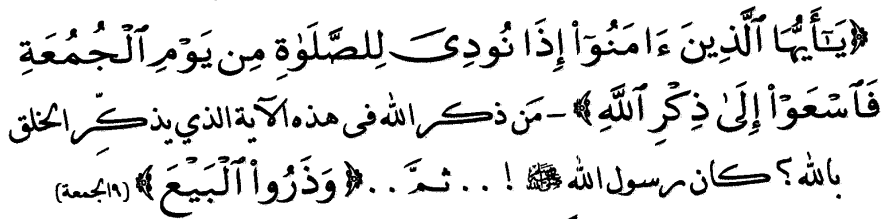 ﴿يَـٰٓأَيُّهَا ٱلَّذِينَ ءَامَنُوٓا۟ إِذَا نُودِىَ لِلصَّلَوٰةِ مِن يَوْمِ ٱلْجُمُعَةِ
فَٱسْعَوْا۟ إِلَىٰ ذِكْرِ ٱللَّهِ﴾ - مَن ذكر الله فى هذه الآية الذي يذكِّر الخلق
بالله؟ كان رسول الله ﷺ ! . . ثمَّ . . ﴿وَذَرُوا۟ ٱلْبَيْعَ﴾ (٩الجمعة)